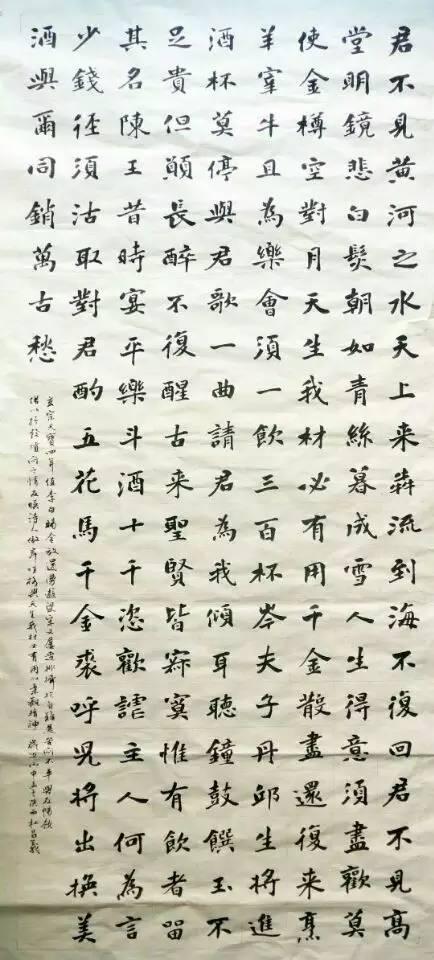 君不見黃河之水天上来犇流到海不復回君不見高
堂明鏡悲白髮朝如青絲暮成雪人生得意須盡歡莫
使金樽空對月天生我材必有用千金散盡還復来烹
羊宰牛且為樂會須一飲三百杯岑夫子丹邱生將進
酒杯莫停與君歌一曲請君為我傾耳聽鐘鼓饌玉不
足貴但願長醉不復醒古来聖賢皆寂寞惟有飲者留
其名陳王昔時宴平樂斗酒十千恣歡謔主人何為言
少錢徑須沽取對君酌五花馬千金裘呼兒將出換美
酒與爾同銷萬古愁
玄宗天寶四年值李白賜金放還
天生我材必有用